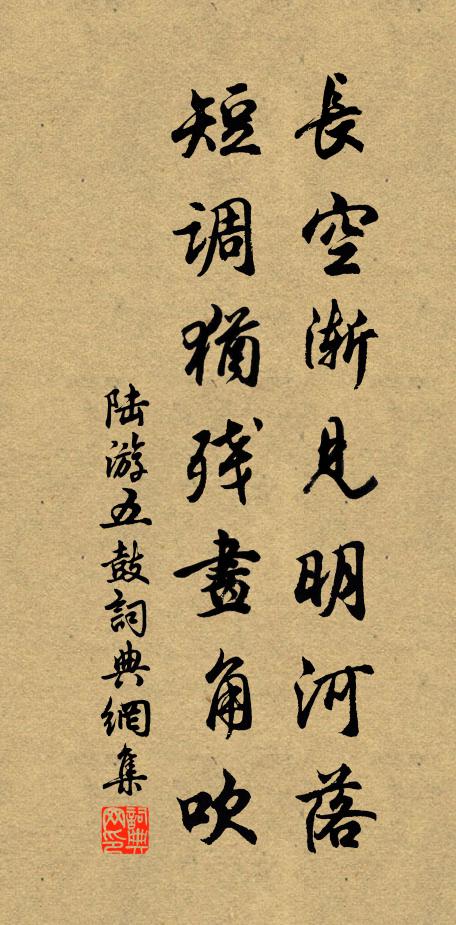 長空漸見明河落
短调猶殘畫角吹
陆游五鼓詞典網集
詞典网印